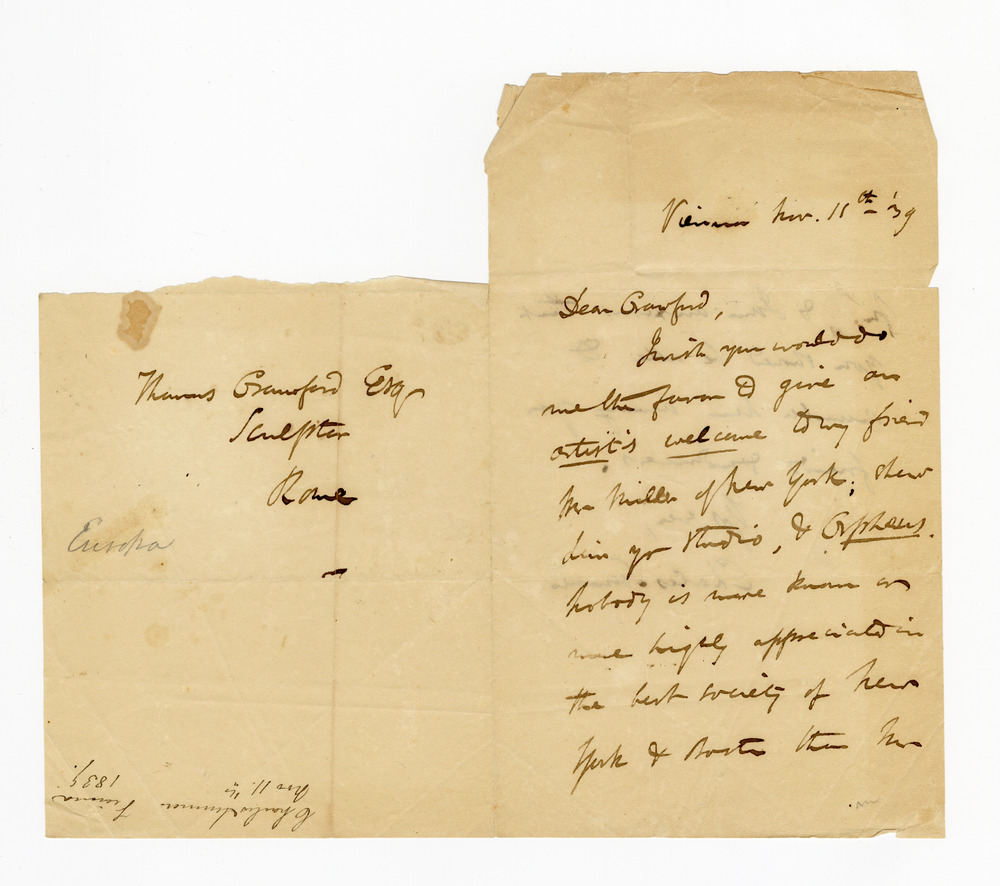 Thomas Crawford Esq
Sculptor
Rome
Europa
Charles Sumner
Nov 11. '39
Vienna
1839.
Vienna Nov. 11th '39
Dear Crawford,
I wish you would do
me the favor to give an
artist's welcome to my friend
Mr Miller of New York; shew
him yr studio, & Orpheus.
Nobody is more known or
more highly appreciated in
the best society of New
York & Boston than Mr